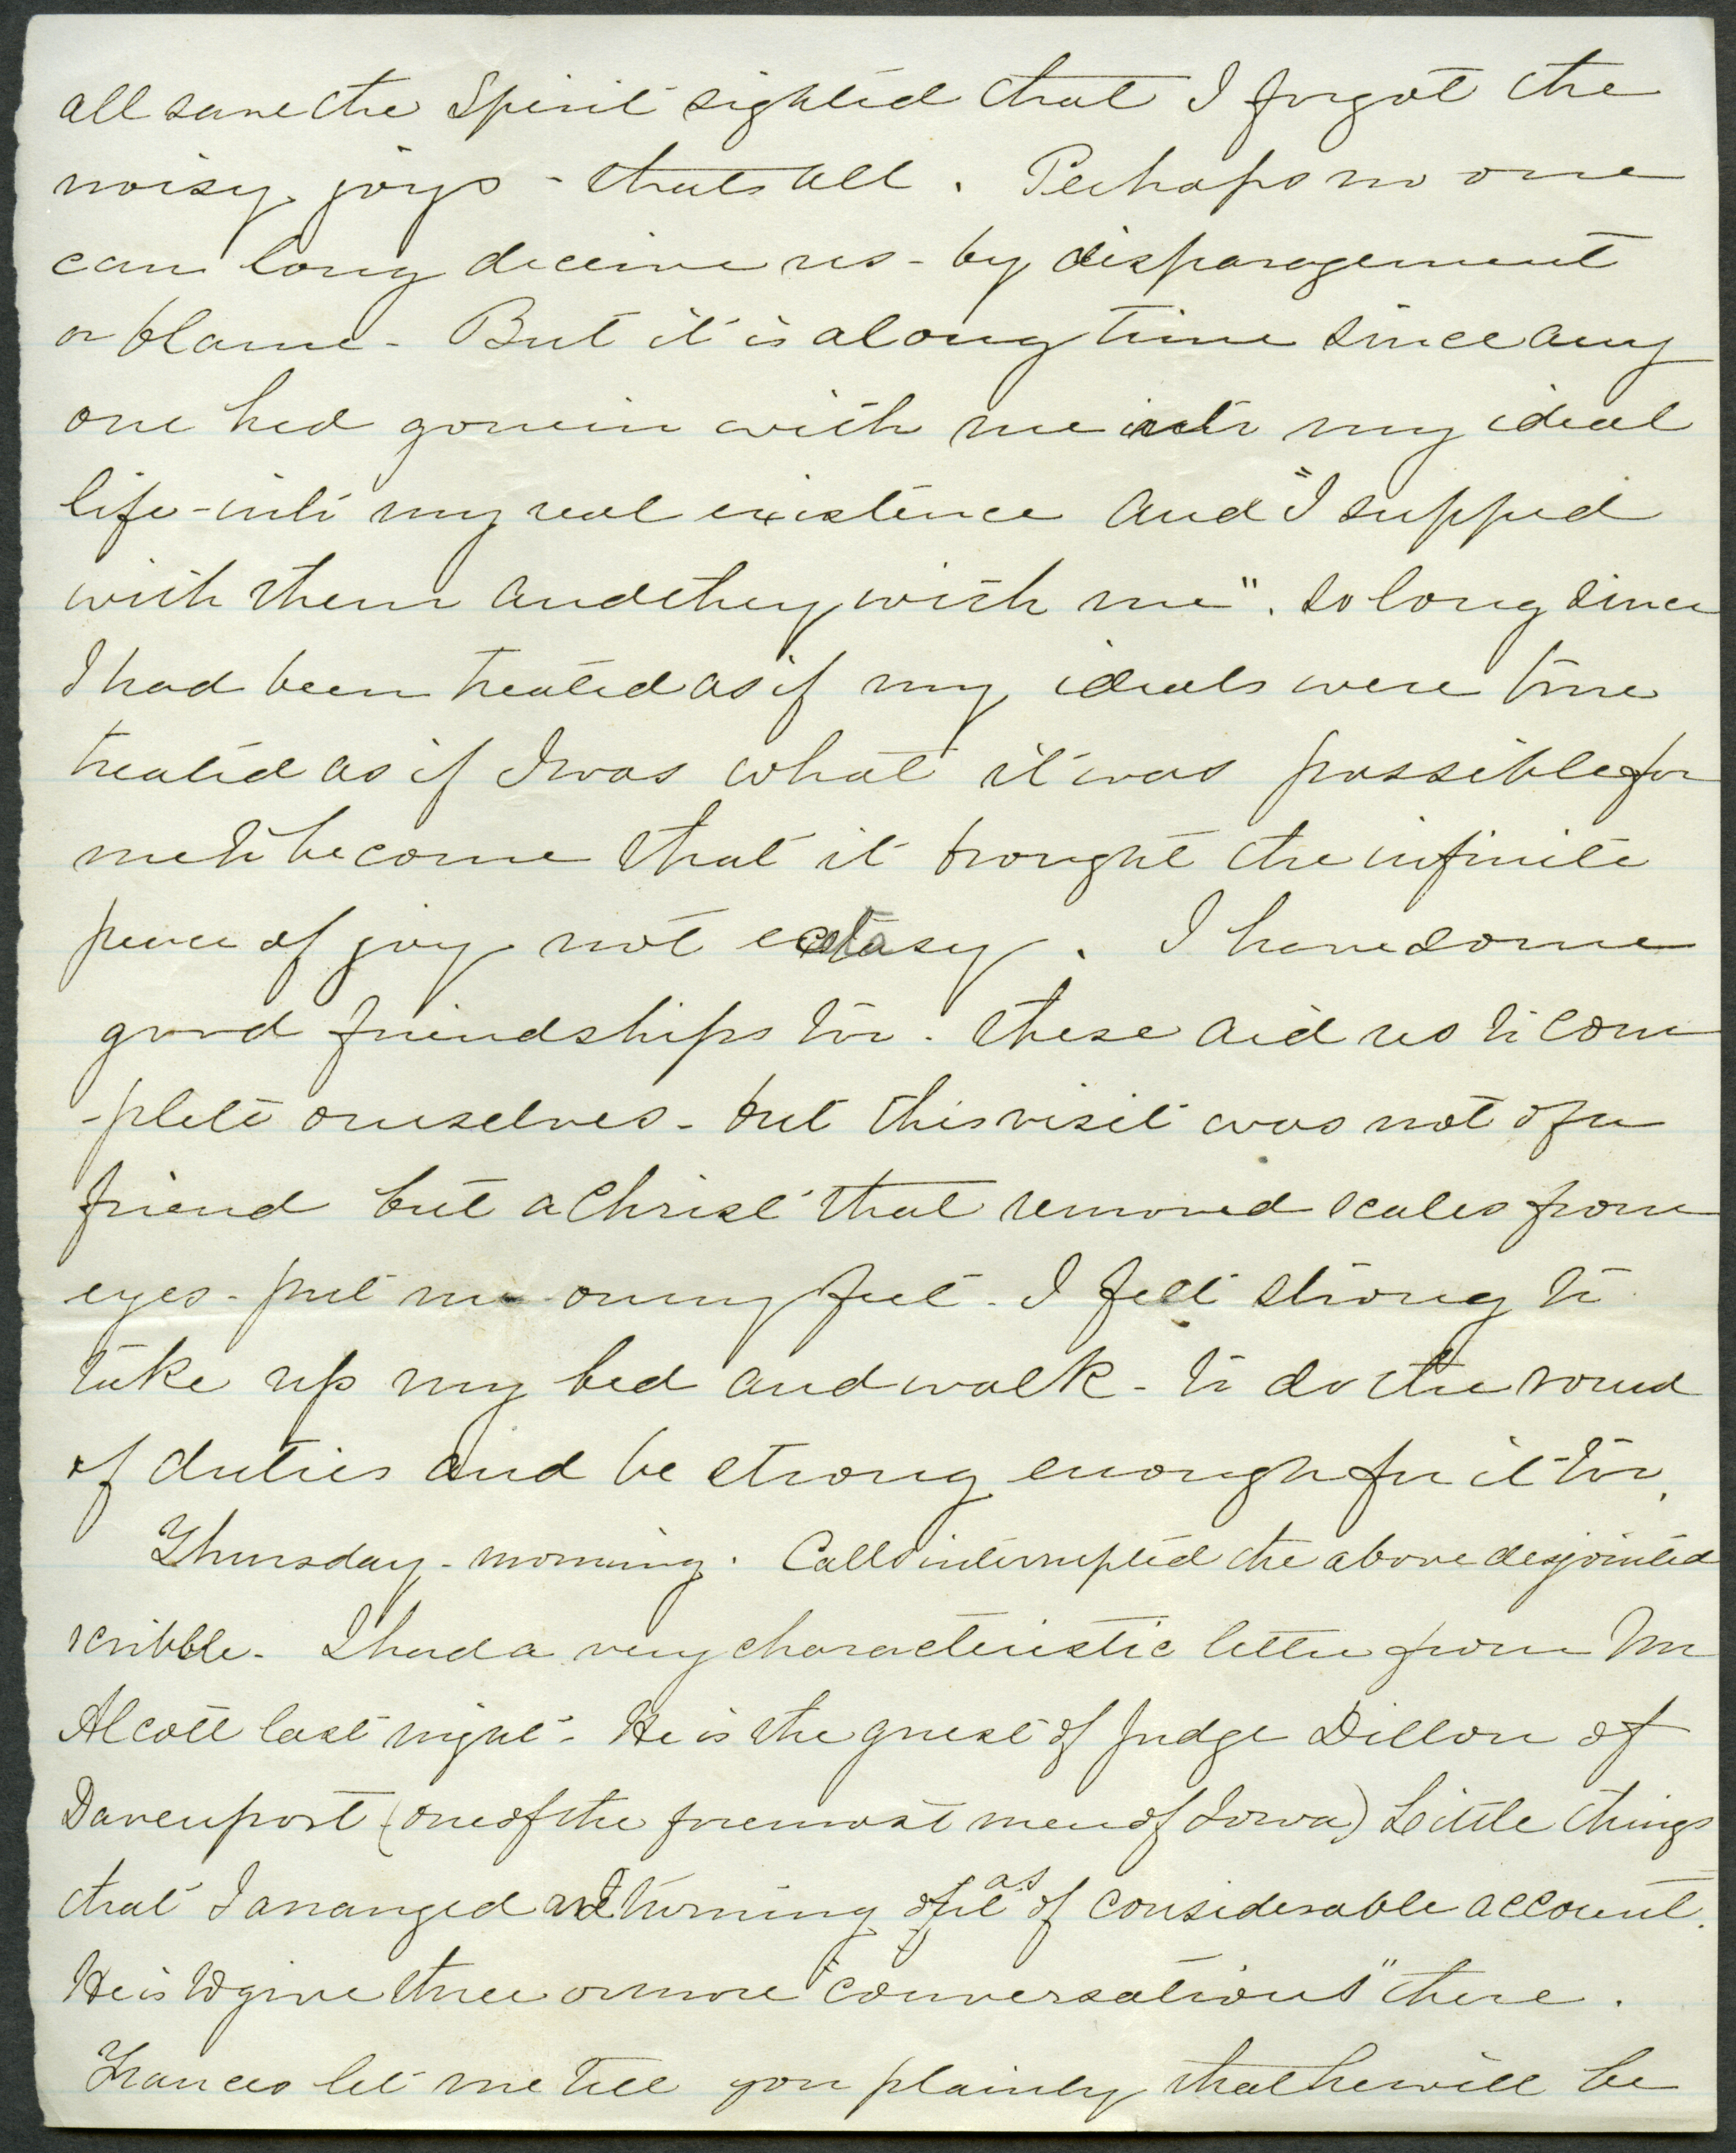 all save the Spirit sighted that I forgot the
noisy joys - thats all. Perhaps no one
can long deceive us - by disparagement
or blame - But it is a long time since any
one had gone in with me into my ideal
life - into my real existence and "I supped
with them and they with me". So long since
I had been treated as if my ideals were true
treated as if I was what it was possible for
me to become that it brought the infinite
peace of joy not ecstasy. I have some
good friendships too. These aid us to com
-plete ourselves - but this visit was not of a
friend but a Christ that removed scales from
eyes - put me on my feet - I felt strong to
take up my bed and walk - to do the round
of duties and be strong enough for it too.
Thursday - morning. Calls interrupted the above disjointed
scribble - I had a very characteristic letter from Mr
Alcott last night - He is the guest of Judge Dillon of
Davenport (one of the foremost men of Iowa) Little things
that I arranged and turning as of considerable account.
He is to give three or more "conversations" there.
Frances let me tell you plainly that he will be